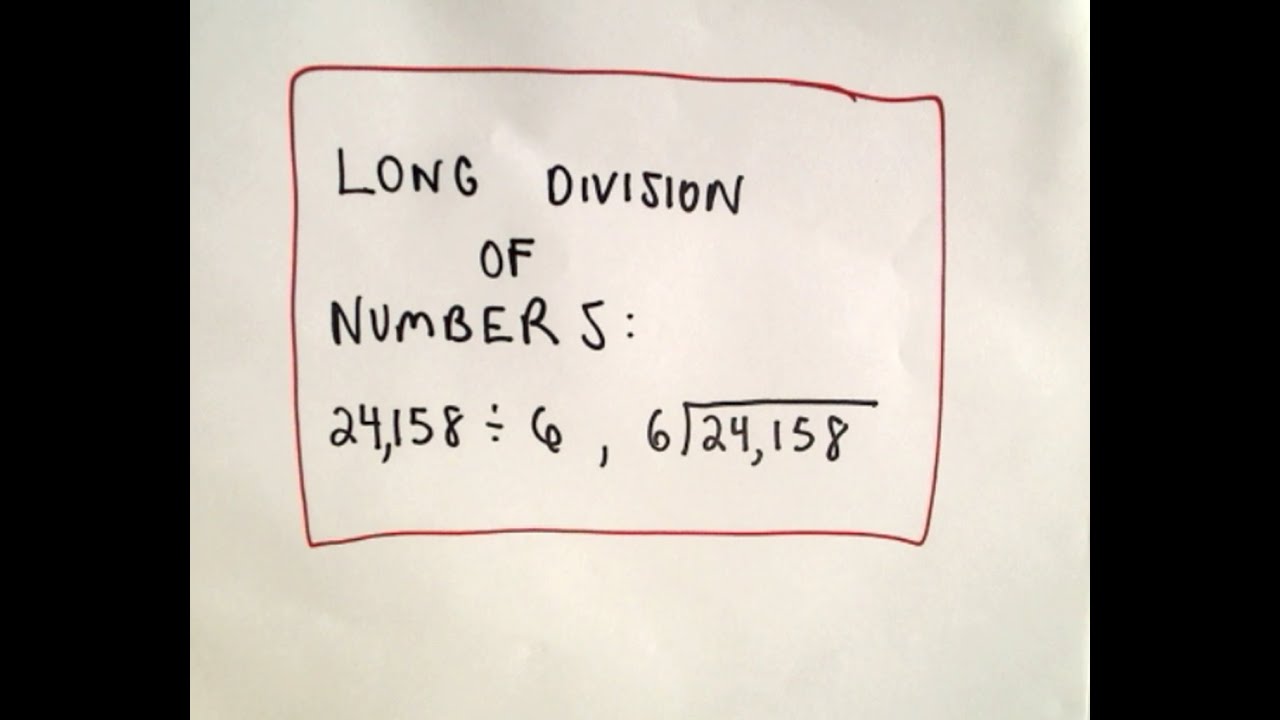 LONG DIVISION
OF
NUMBERS:
24,158 ÷ 6 , 6)24,158